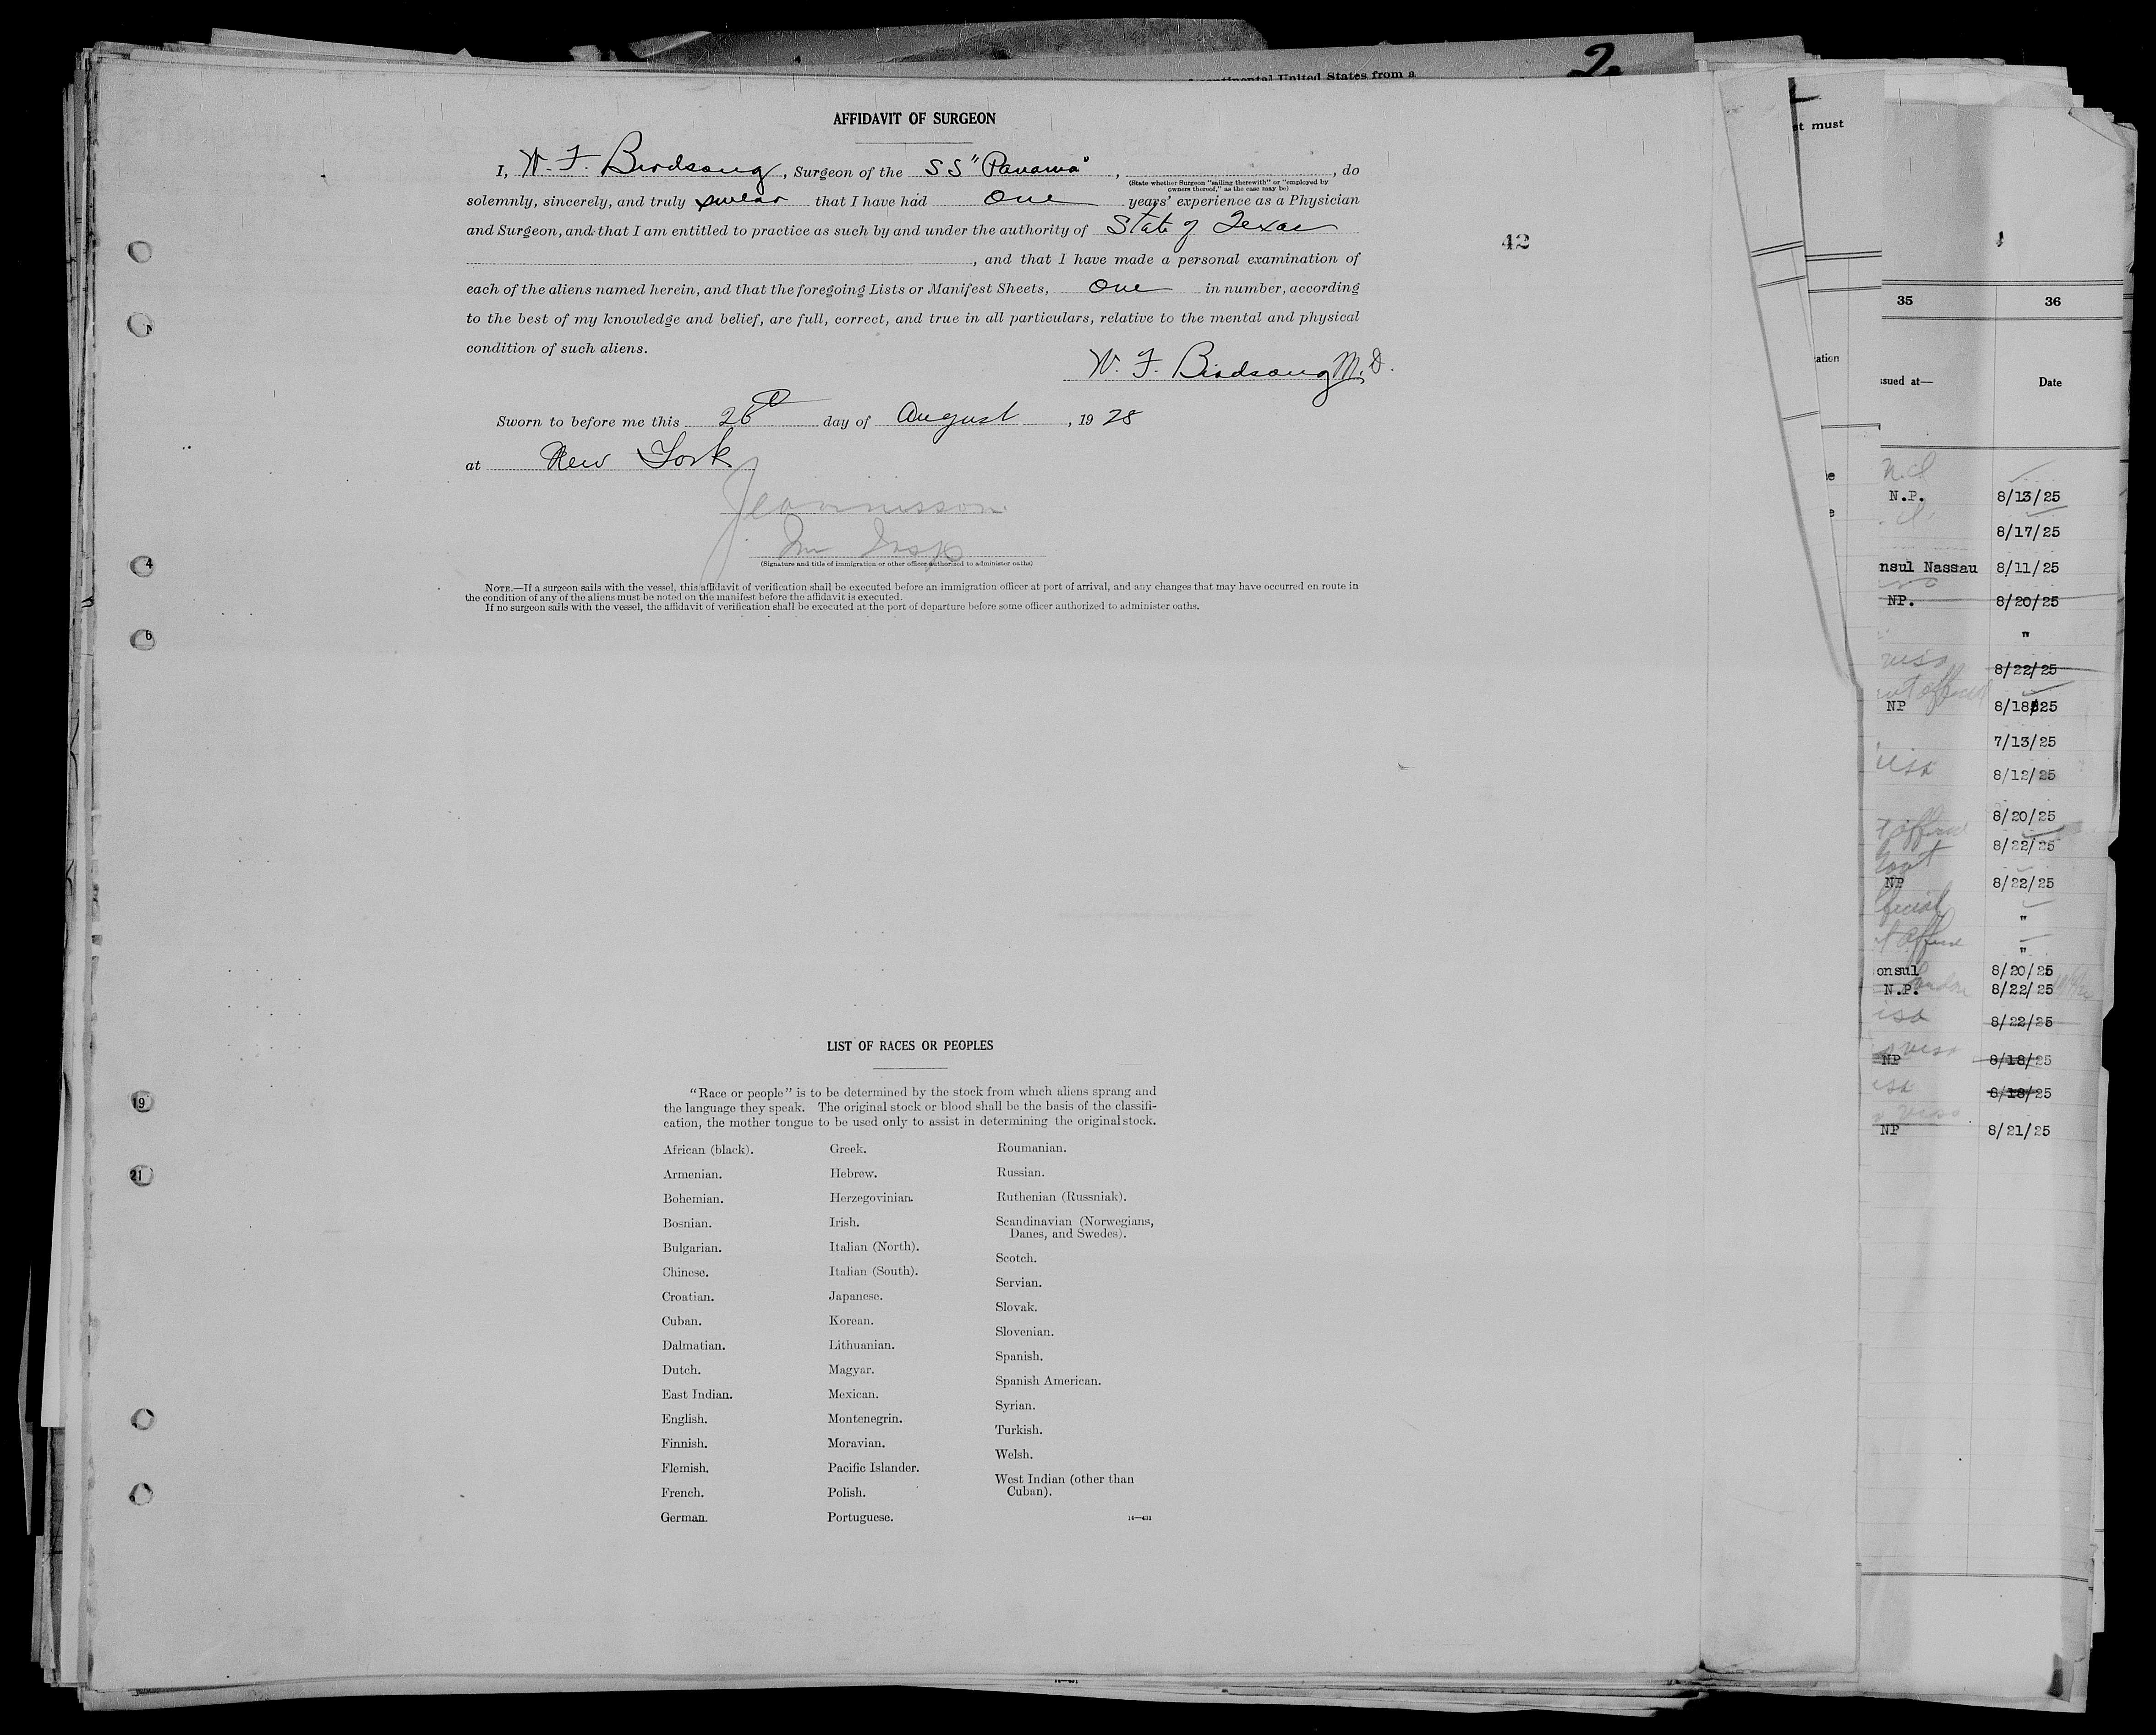 continental United States from a
2
AFFIDAVIT OF SURGEON
I, W. F. Birdsong, Surgeon of the SS "Panama", , do
(State whether Surgeon "sailing therewith" or "employed by
owners thereof," as the case may be)
solemnly, sincerely, and truly swear that I have had One years' experience as a Physician
and Surgeon, and that I am entitled to practice as such by and under the authority of State of Texas
, and that I have made a personal examination of
42
each of the aliens named herein, and that the foregoing Lists or Manifest Sheets, One in number, according
to the best of my knowledge and belief, are full, correct, and true in all particulars, relative to the mental and physical
condition of such aliens.
W. F. Birdsong M.D.
Sworn to before me this 26th day of August, 1928
at New York
Im Insp
(Signature and title of immigration or other officer authorized to administer oaths)
NOTE.—If a surgeon sails with the vessel, this affidavit of verification shall be executed before an immigration officer at port of arrival, and any changes that may have occurred en route in
the condition of any of the aliens must be noted on the manifest before the affidavit is executed.
If no surgeon sails with the vessel, the affidavit of verification shall be executed at the port of departure before some officer authorized to administer oaths.
4
6
19
21
LIST OF RACES OR PEOPLES
"Race or people" is to be determined by the stock from which aliens sprang and
the language they speak. The original stock or blood shall be the basis of the classifi-
cation, the mother tongue to be used only to assist in determining the original stock.
African (black).
Armenian.
Bohemian.
Bosnian.
Bulgarian.
Chinese.
Croatian.
Cuban.
Dalmatian.
Dutch.
East Indian.
English.
Finnish.
Flemish.
French.
German.
Greek.
Hebrew.
Herzegovinian.
Irish.
Italian (North).
Italian (South).
Japanese.
Korean.
Lithuanian.
Magyar.
Mexican.
Montenegrin.
Moravian.
Pacific Islander.
Polish.
Portuguese.
Roumanian.
Russian.
Ruthenian (Russniak).
Scandinavian (Norwegians,
Danes, and Swedes).
Scotch.
Servian.
Slovak.
Slovenian.
Spanish.
Spanish American.
Syrian.
Turkish.
Welsh.
West Indian (other than
Cuban).
14—431
st must
ation
35 36
ssued at— Date
N.P. 8/13/25
8/17/25
nsul Nassau 8/11/25
NP. 8/20/25
"
8/22/25
NP 8/18/25
7/13/25
8/12/25
8/20/25
8/22/25
NP 8/22/25
"
"
onsul 8/20/25
N.P. 8/22/25
8/22/25
NP 8/18/25
8/18/25
NP 8/21/25